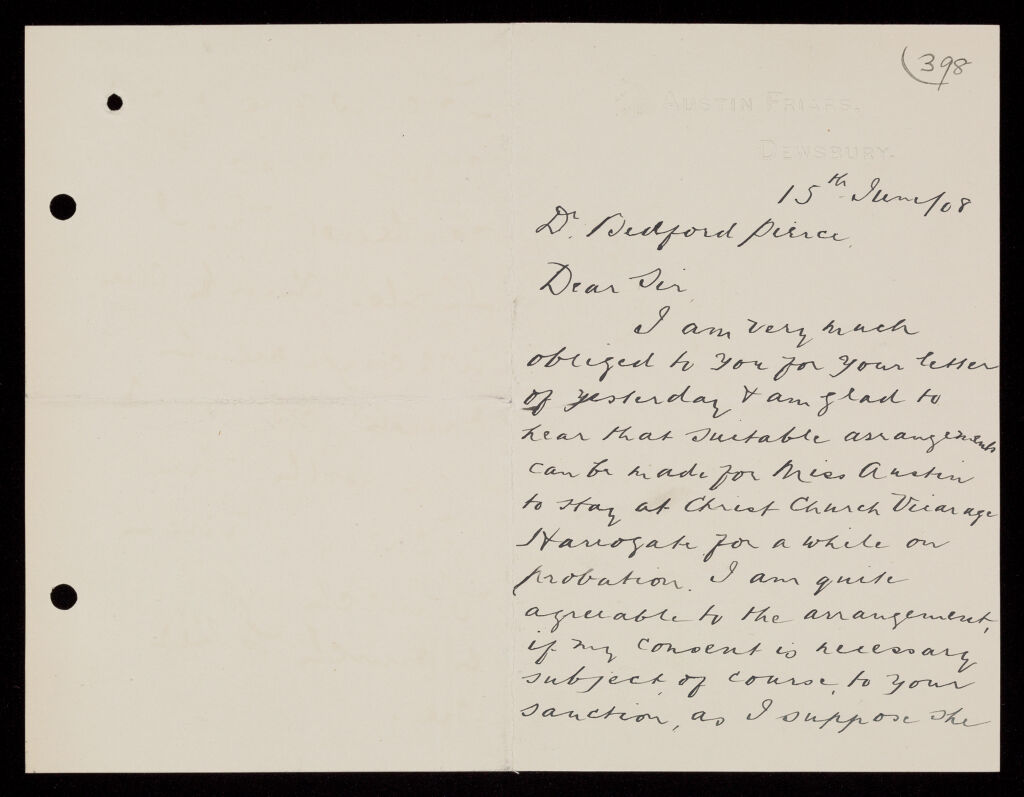 398
AUSTIN FRIARS.
DEWSBURY.
15th June/08
Dr. Bedford Pierce.
Dear Sir,
I am very much
obliged to you for your letter
of yesterday & am glad to
hear that suitable arrangements
can be made for Miss Austin
to stay at Christ Church Vicarage
Harrogate for a while on
probation. I am quite
agreeable to the arrangement,
if my consent is necessary
subject, of course, to your
sanction, as I suppose she